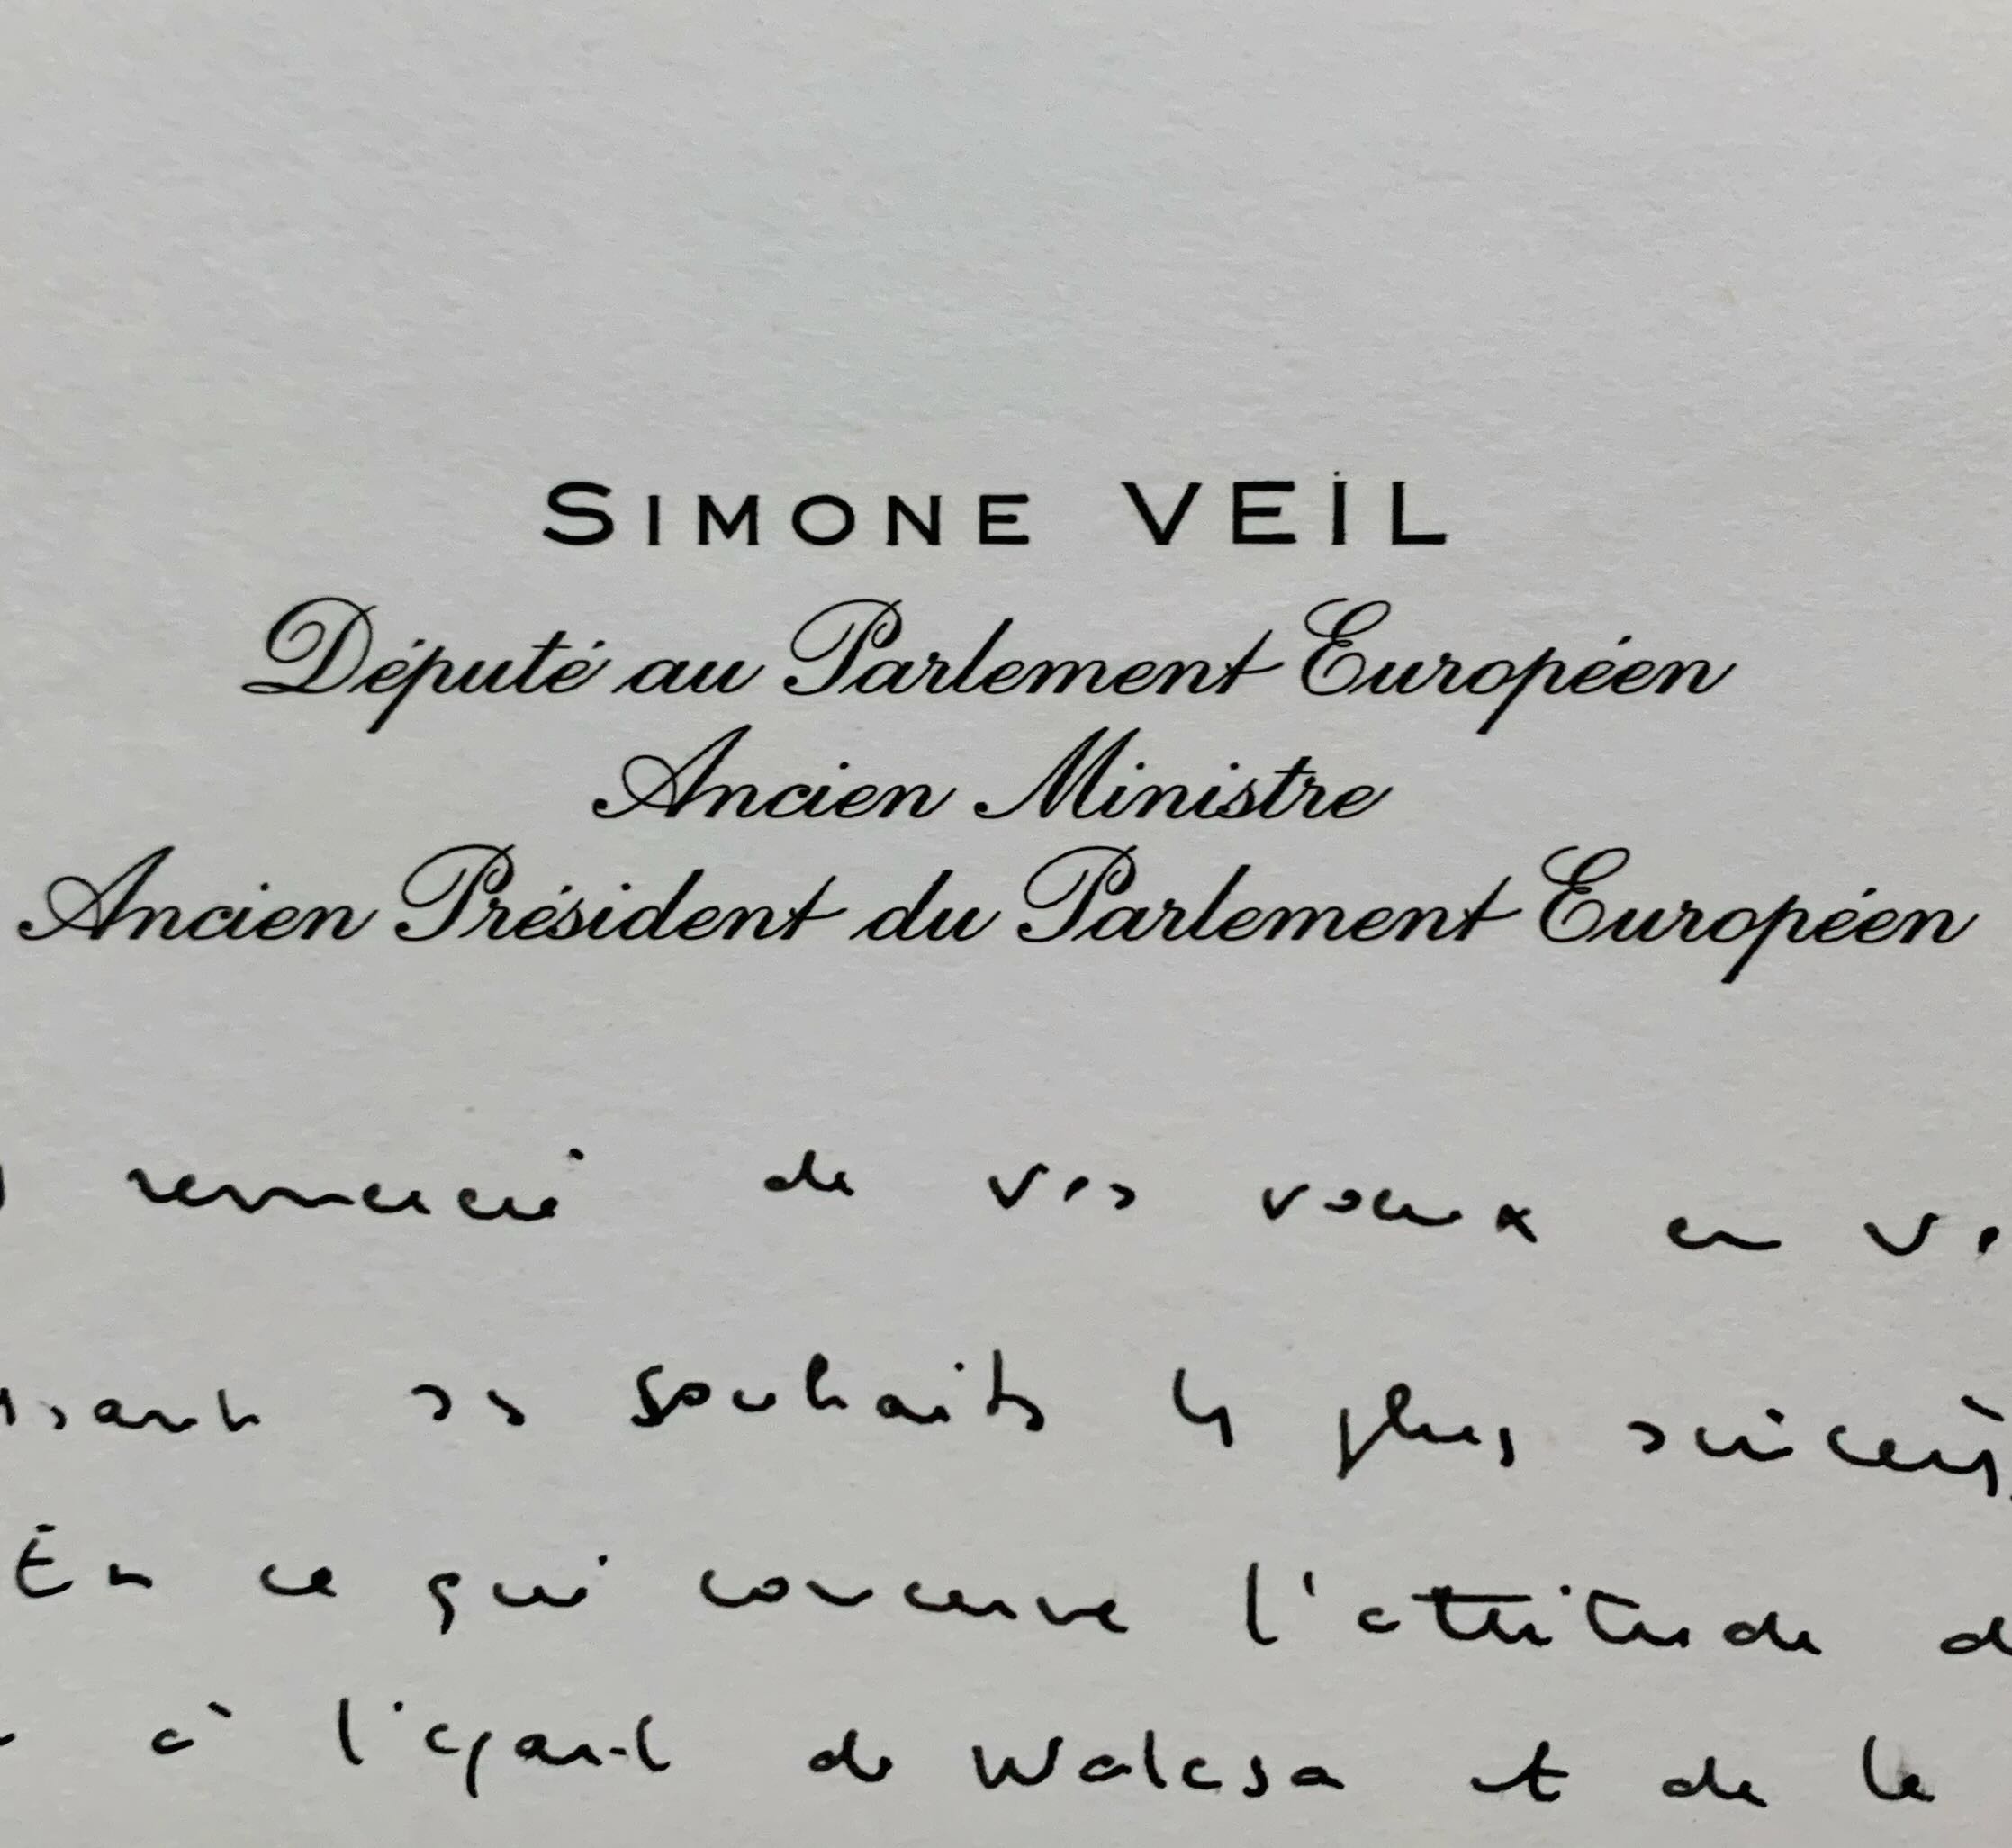 SIMONE VEIL
Député au Parlement Européen
Ancien Ministre
Ancien Président du Parlement Européen
remercie de vos voeux en
ses souhaits les plus sincères
En ce qui concerne l'attitude
à l'égard de Walesa et de la